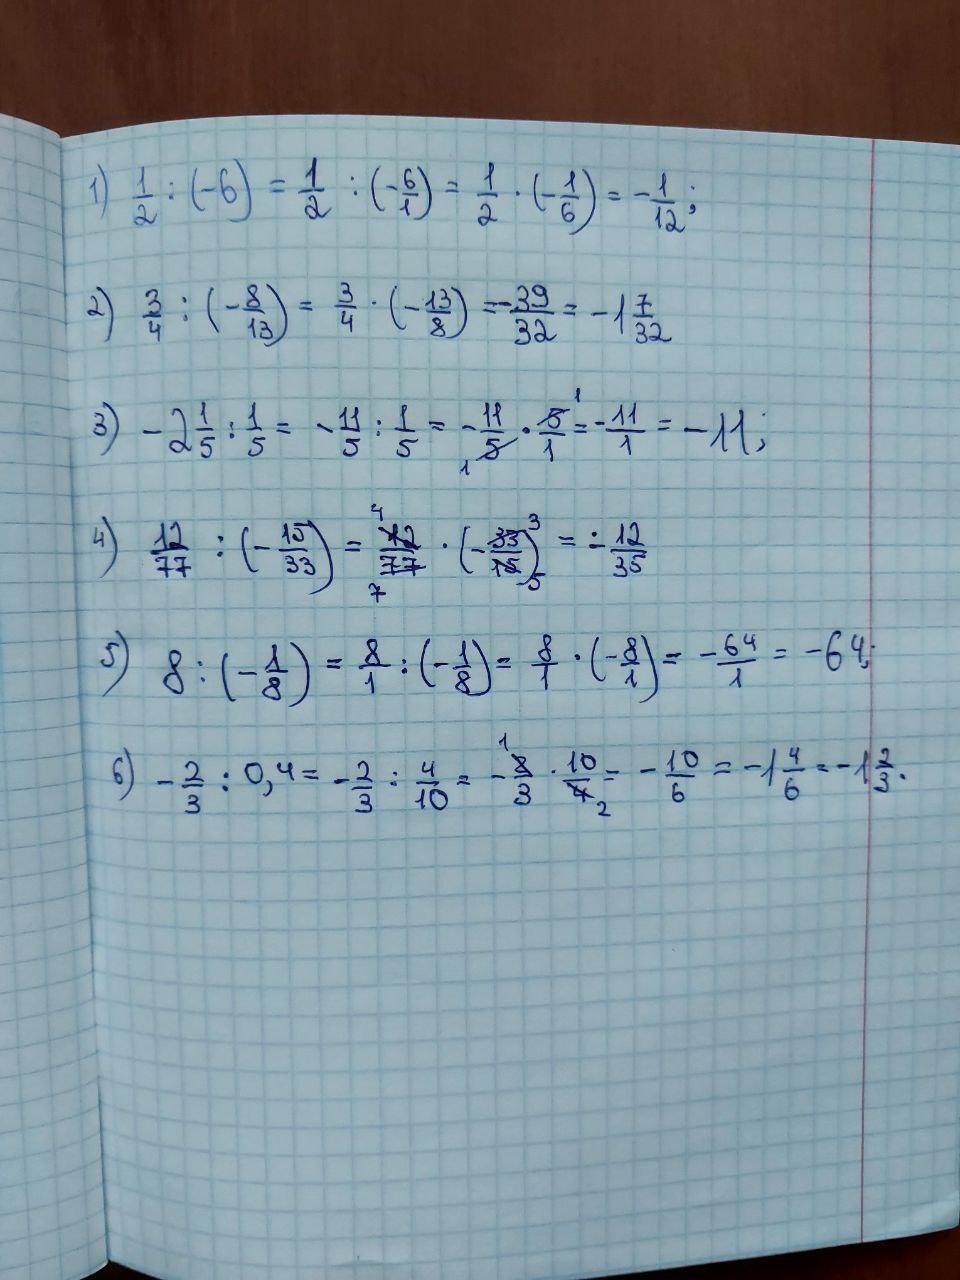 1) 1/2 : (-6) = 1/2 : (-6/1) = 1/2 · (-1/6) = -1/12;
2) 3/4 : (-8/13) = 3/4 · (-13/8) = -39/32 = -1 7/32
3) -2 1/5 : 1/5 = -11/5 : 1/5 = -11/5 · 5/1 = -11/1 = -11;
4) 12/77 : (-15/33) = 12/77 · (-33/15) = -12/35
5) 8 : (-1/8) = 8/1 : (-1/8) = 8/1 · (-8/1) = -64/1 = -64;
6) -2/3 : 0,4 = -2/3 : 4/10 = -2/3 · 10/4 = -10/6 = -1 4/6 = -1 2/3.